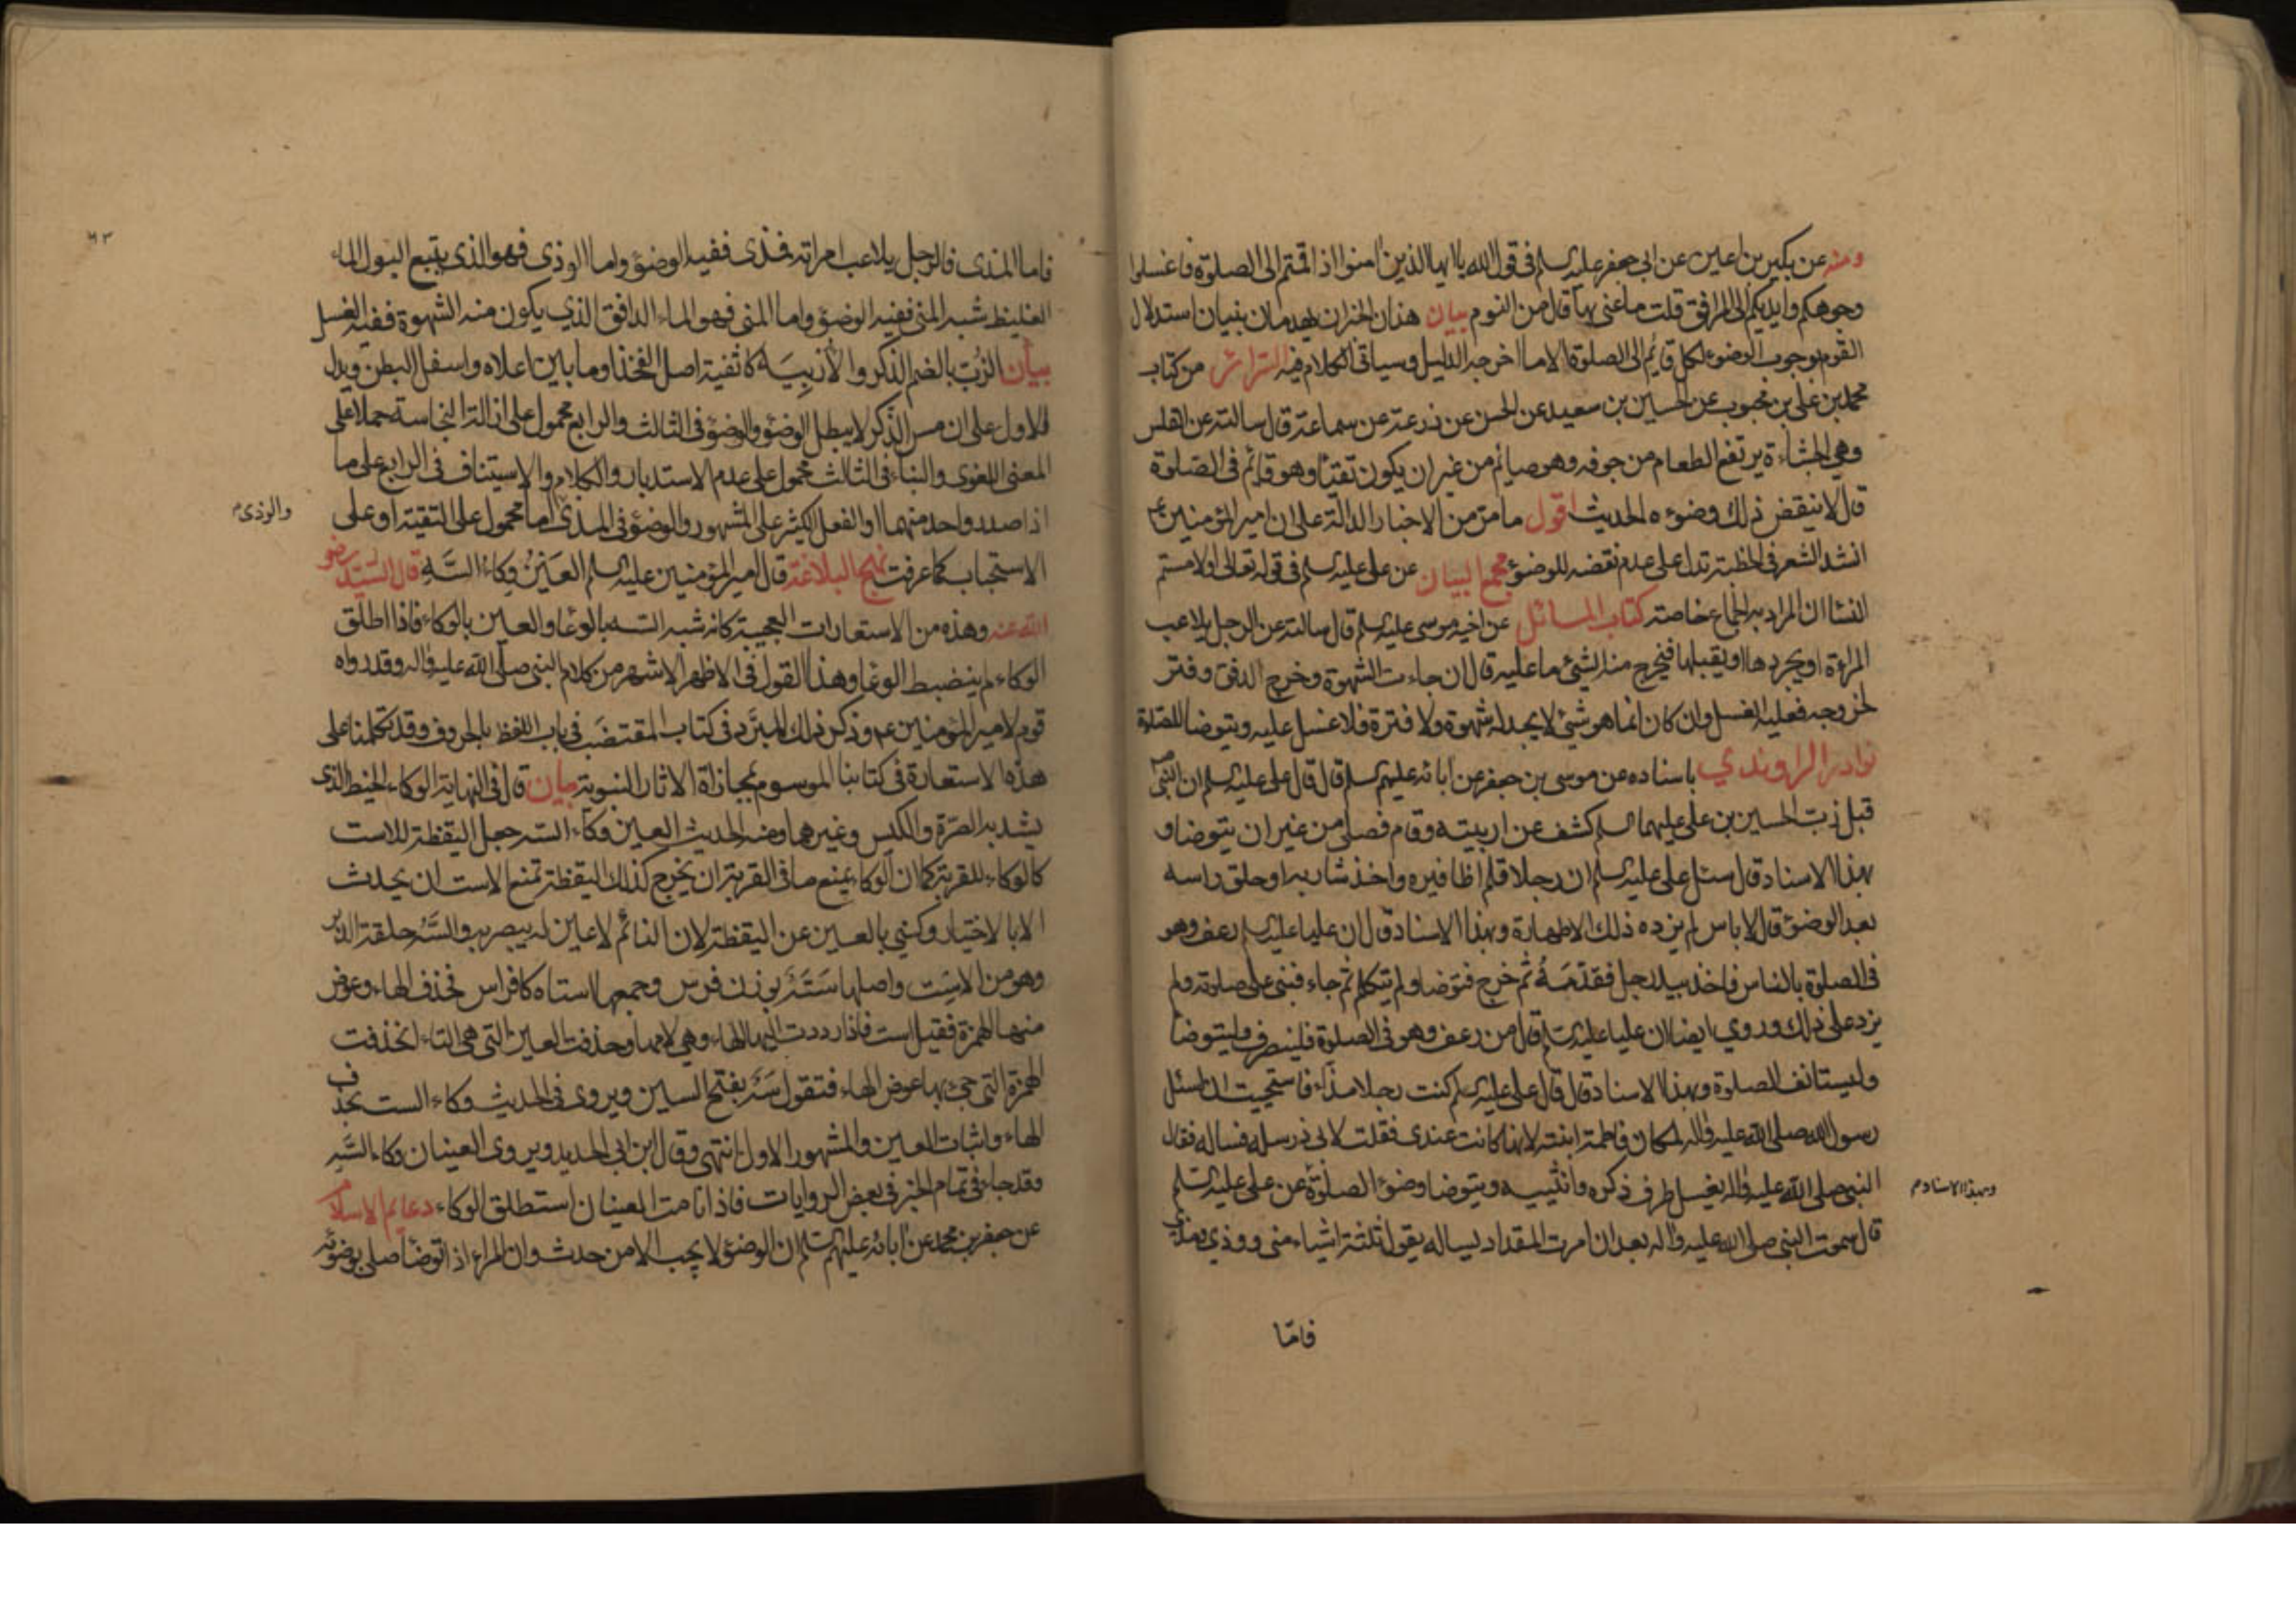 ومنه عن بكير بن اعين عن ابى جعفر عليه السلم فى قول الله يا ايها الذين امنوا اذا قمتم الى الصلوة فاغسلوا
وجوهكم وايديكم الى المرافق قلت ما عنى بها قال من النوم بيان هذان الخبران يهدمان بنيان استدلال
القوم بوجوب الوضوء لكل قائم الى الصلوة الا ما اخرجه الدليل وسياتى الكلام فيه السرائر من كتاب
محمد بن على بن محبوب عن الحسين بن سعيد عن الحسن عن زرعة عن سماعة قال سالته عن القلس
وهى الجشاءة يرتفع الطعام من جوفه وهو صائم من غير ان يكون تقيا وهو قائم فى الصلوة
قال لا ينقض ذلك وضوءه الحديث اقول ما مر من الاخبار الدالة على ان امير المؤمنين ع
انشد الشعر فى الخطبة تدل على عدم نقضه للوضوء مجمع البيان عن على عليه السلم فى قوله تعالى اولامستم
النساء ان المراد به الجماع خاصة كتاب المسائل عن اخيه موسى عليه السلم قال سالته عن الرجل يلاعب
المراة او يجردها او يقبلها فيخرج منه الشئ ما عليه قال ان جاءت الشهوة وخرج الدفق وفتر
لخروجه فعليه الغسل وان كان انما هو شئ لا يجد له شهوة ولا فترة فلا غسل عليه ويتوضا للصلوة
نوادر الراوندي باسناده عن موسى بن جعفر عن ابائه عليهم السلم قال قال على عليه السلم ان النبى ص
قبل زب الحسين بن على عليهما السلم كشف عن اربيته وقام فصلى من غير ان يتوضا و
بهذا الاسناد قال سئل على عليه السلم ان رجلا قلم اظافيره واخذ شاربه او حلق راسه
بعد الوضوء قال لا باس لم يزده ذلك الا طهارة وبهذا الاسناد قال ان عليا عليه السلم رعف وهو
فى الصلوة بالناس فاخذ بيد رجل فقدمه ثم خرج فتوضا ولم يتكلم ثم جاء فبنى على صلوته ولم
يزد على ذلك وروي ايضا ان عليا عليه السلم قال من رعف وهو فى الصلوة فلينصرف وليتوضا
وليستانف الصلوة وبهذا الاسناد قال قال على عليه السلم كنت رجلا مذاء فاستحييت ان اسئل
رسول الله صلى الله عليه واله لمكان فاطمة ابنته لانها كانت عندى فقلت لابى ذر سله فساله فقال
النبى صلى الله عليه واله يغسل طرف ذكره وانثييه ويتوضا وضوء الصلوة عن على عليه السلم
وبهذا الاسناد م
قال سمعت النبى صلى الله عليه واله بعد ان امرت المقداد ليساله يقول ثلثة اشياء منى ووذي ومذي
فامّا
٦٣
فاما المذى فالرجل يلاعب امراته فمذى ففيه الوضوء واما الوذى فهو الذى يتبع البول الماء
الغليظ شبه المنى ففيه الوضوء واما المنى فهو الماء الدافق الذي يكون منه الشهوة ففيه الغسل
بيان الزُب بالضم الذكر والاربيَة كاثفية اصل الفخذ او ما بين اعلاه واسفل البطن ويدل
الاول على ان مس الذكر لا يبطل الوضوء والوضوء فى الثالث والرابع محمول على ازالة النجاسة حملا على
المعنى اللغوى والبناء فى الثالث محمول على عدم الاستدبار والكلام والاستيناف فى الرابع على ما
اذا صدر واحد منهما او الفعل الكثير على المشهور والوضوء فى المذى اما محمول على التقية او على
والوذى م
الاستحباب كما عرفت نهج البلاغة قال امير المؤمنين عليه السلم العَينُ وِكاءُ السَّهِ قال السيد رضى
الله عنه وهذه من الاستعارات العجيبة كانه شبه السه بالوعاء والعين بالوكاء فاذا اطلق
الوكاء لم ينضبط الوعاء وهذا القول فى الاظهر الاشهر من كلام النبى صلى الله عليه واله وقد رواه
قوم لامير المؤمنين ع وذكر ذلك المبرَّد فى كتاب المقتضَب فى باب اللفظ بالحروف وقد تكلمنا على
هذه الاستعارة فى كتابنا الموسوم بمجازات الاثار النبوية بيان قال فى النهاية الوكاء الخيط الذى
يشد به الصرة والكيس وغيرهما ومنه الحديث العين وكاء السه جعل اليقظة للاست
كالوكاء للقربة كما ان الوكاء يمنع ما فى القربة ان يخرج كذلك اليقظة تمنع الاست ان يحدث
الا بالاختيار وكنى بالعين عن اليقظة لان النائم لا عين له يبصر بها والسَّه حلقة الدبر
وهو من الاست واصلها سَتَه بوزن فرس وجمعها استاه كافراس فحذف الهاء وعوض
منها الهمزة فقيل است فاذا رددت اليها الهاء وهى لامها وحذفت العين التى هى التاء انحذفت
الهمزة التى جئ بها عوض الهاء فتقول سَه بفتح السين ويروى فى الحديث وكاء الست بحذف
الهاء واثبات العين والمشهور الاول انتهى وقال ابن ابى الحديد ويروى العينان وكاء السَّه
وقد جاء فى تمام الخبر فى بعض الروايات فاذا نامت العينان استطلق الوكاء دعايم الاسلام
عن جعفر بن محمد عن ابائه عليهم السلم ان الوضوء لا يجب الا من حدث وان المرء اذا توضا صلى بوضوئه